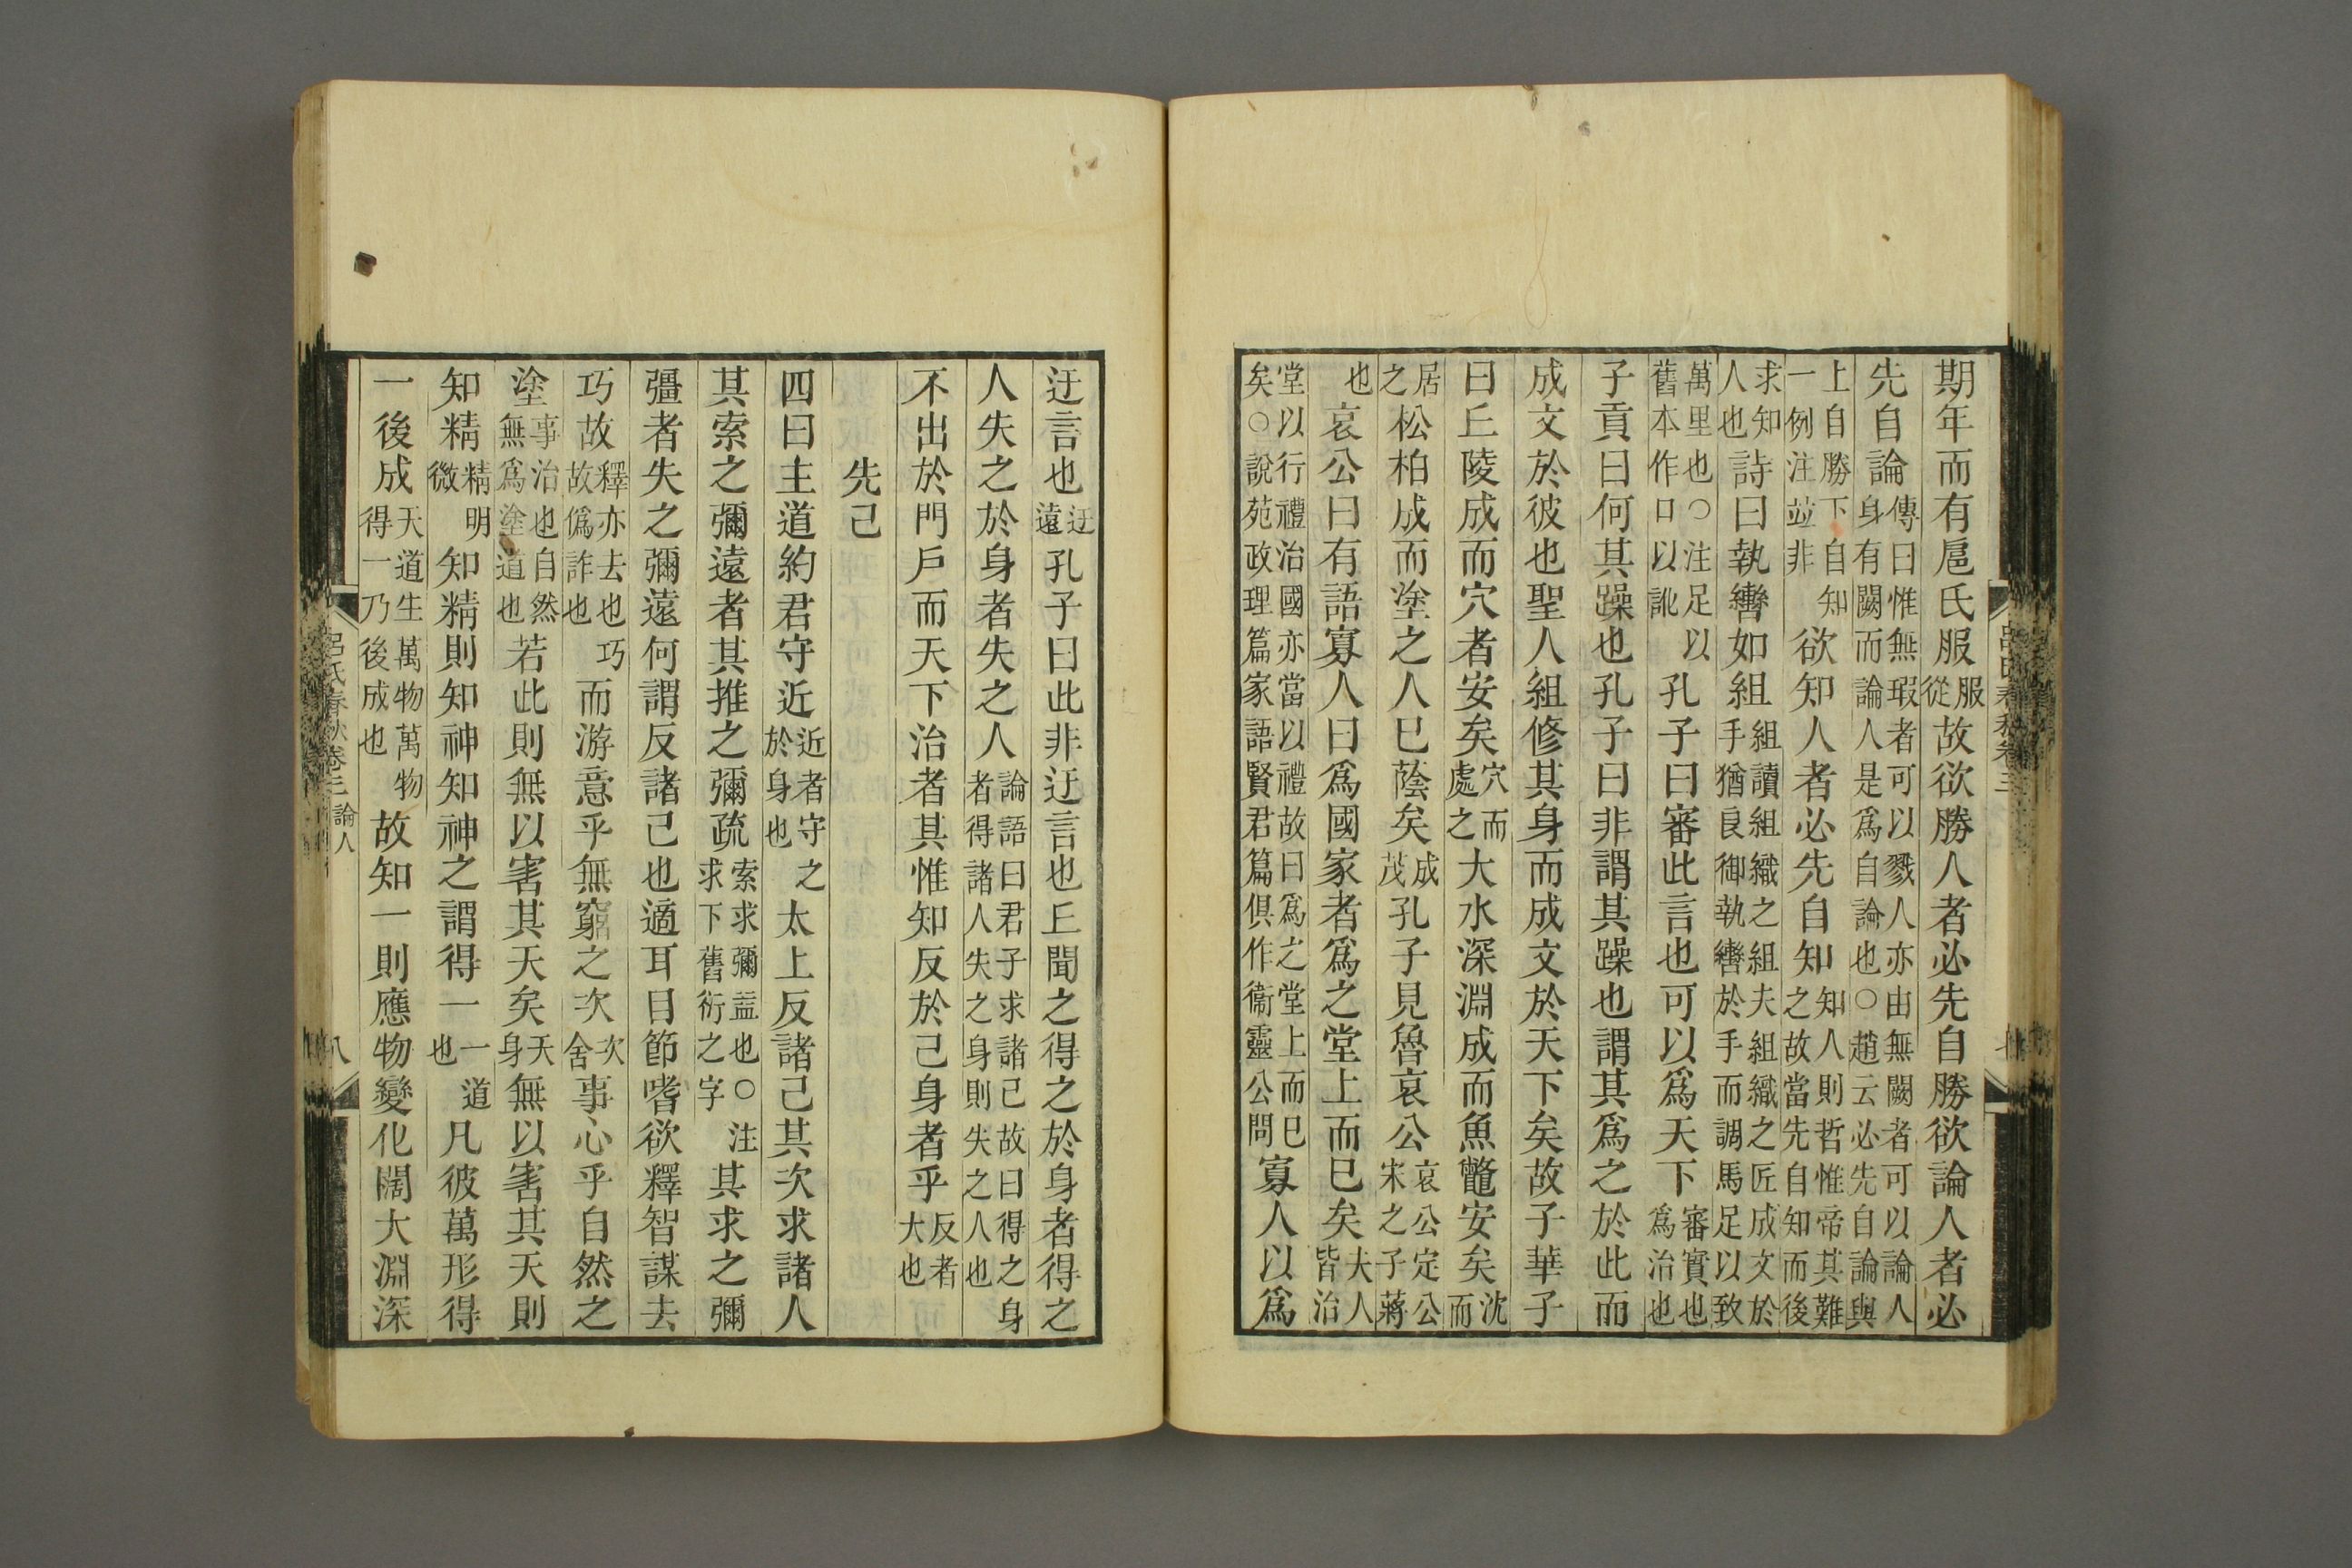 呂氏春秋卷三
期年而有扈氏服服從故欲勝人者必先自勝欲論人者必
先自論傳曰惟無瑕者可以戮人亦由無闕者可以論人身有闕而論人是爲自論也○趙云必先自論與
上自勝下自知一例注並非欲知人者必先自知知人則哲惟帝其難之故當先自知而後
求知人也詩曰執轡如組組讀組織之組夫組織之匠成文於手猶良御執轡於手而調馬足以致
萬里也○注足以舊本作口以訛孔子曰審此言也可以爲天下審實也爲治也
子貢曰何其躁也孔子曰非謂其躁也謂其爲之於此而
成文於彼也聖人組修其身而成文於天下矣故子華子
曰丘陵成而穴者安矣穴而處之大水深淵成而魚鼈安矣沈而
居之松柏成而塗之人已蔭矣成茂孔子見魯哀公哀公定公宋之子蔣
也哀公曰有語寡人曰爲國家者爲之堂上而已矣夫人皆治
堂以行禮治國亦當以禮故曰爲之堂上而已矣○說苑政理篇家語賢君篇俱作衞靈公問寡人以爲
迂言也迂遠孔子曰此非迂言也丘聞之得之於身者得之
人失之於身者失之人論語曰君子求諸己故曰得之身者得諸人失之身則失之人也
不出於門戶而天下治者其惟知反於己身者乎反者大也
先己
四曰主道約君守近近者守之於身也太上反諸己其次求諸人
其索之彌遠者其推之彌疏索求彌益也○注求下舊衍之字其求之彌
彊者失之彌遠何謂反諸己也適耳目節嗜欲釋智謀去
巧故釋亦去也巧故僞詐也而游意乎無窮之次次舍事心乎自然之
塗事治也自然無爲塗道也若此則無以害其天矣天身無以害其天則
知精精明微知精則知神知神之謂得一一道也凡彼萬形得
一後成天道生萬物萬物得一乃後成也故知一則應物變化闊大淵深
呂氏春秋卷三 論人 八